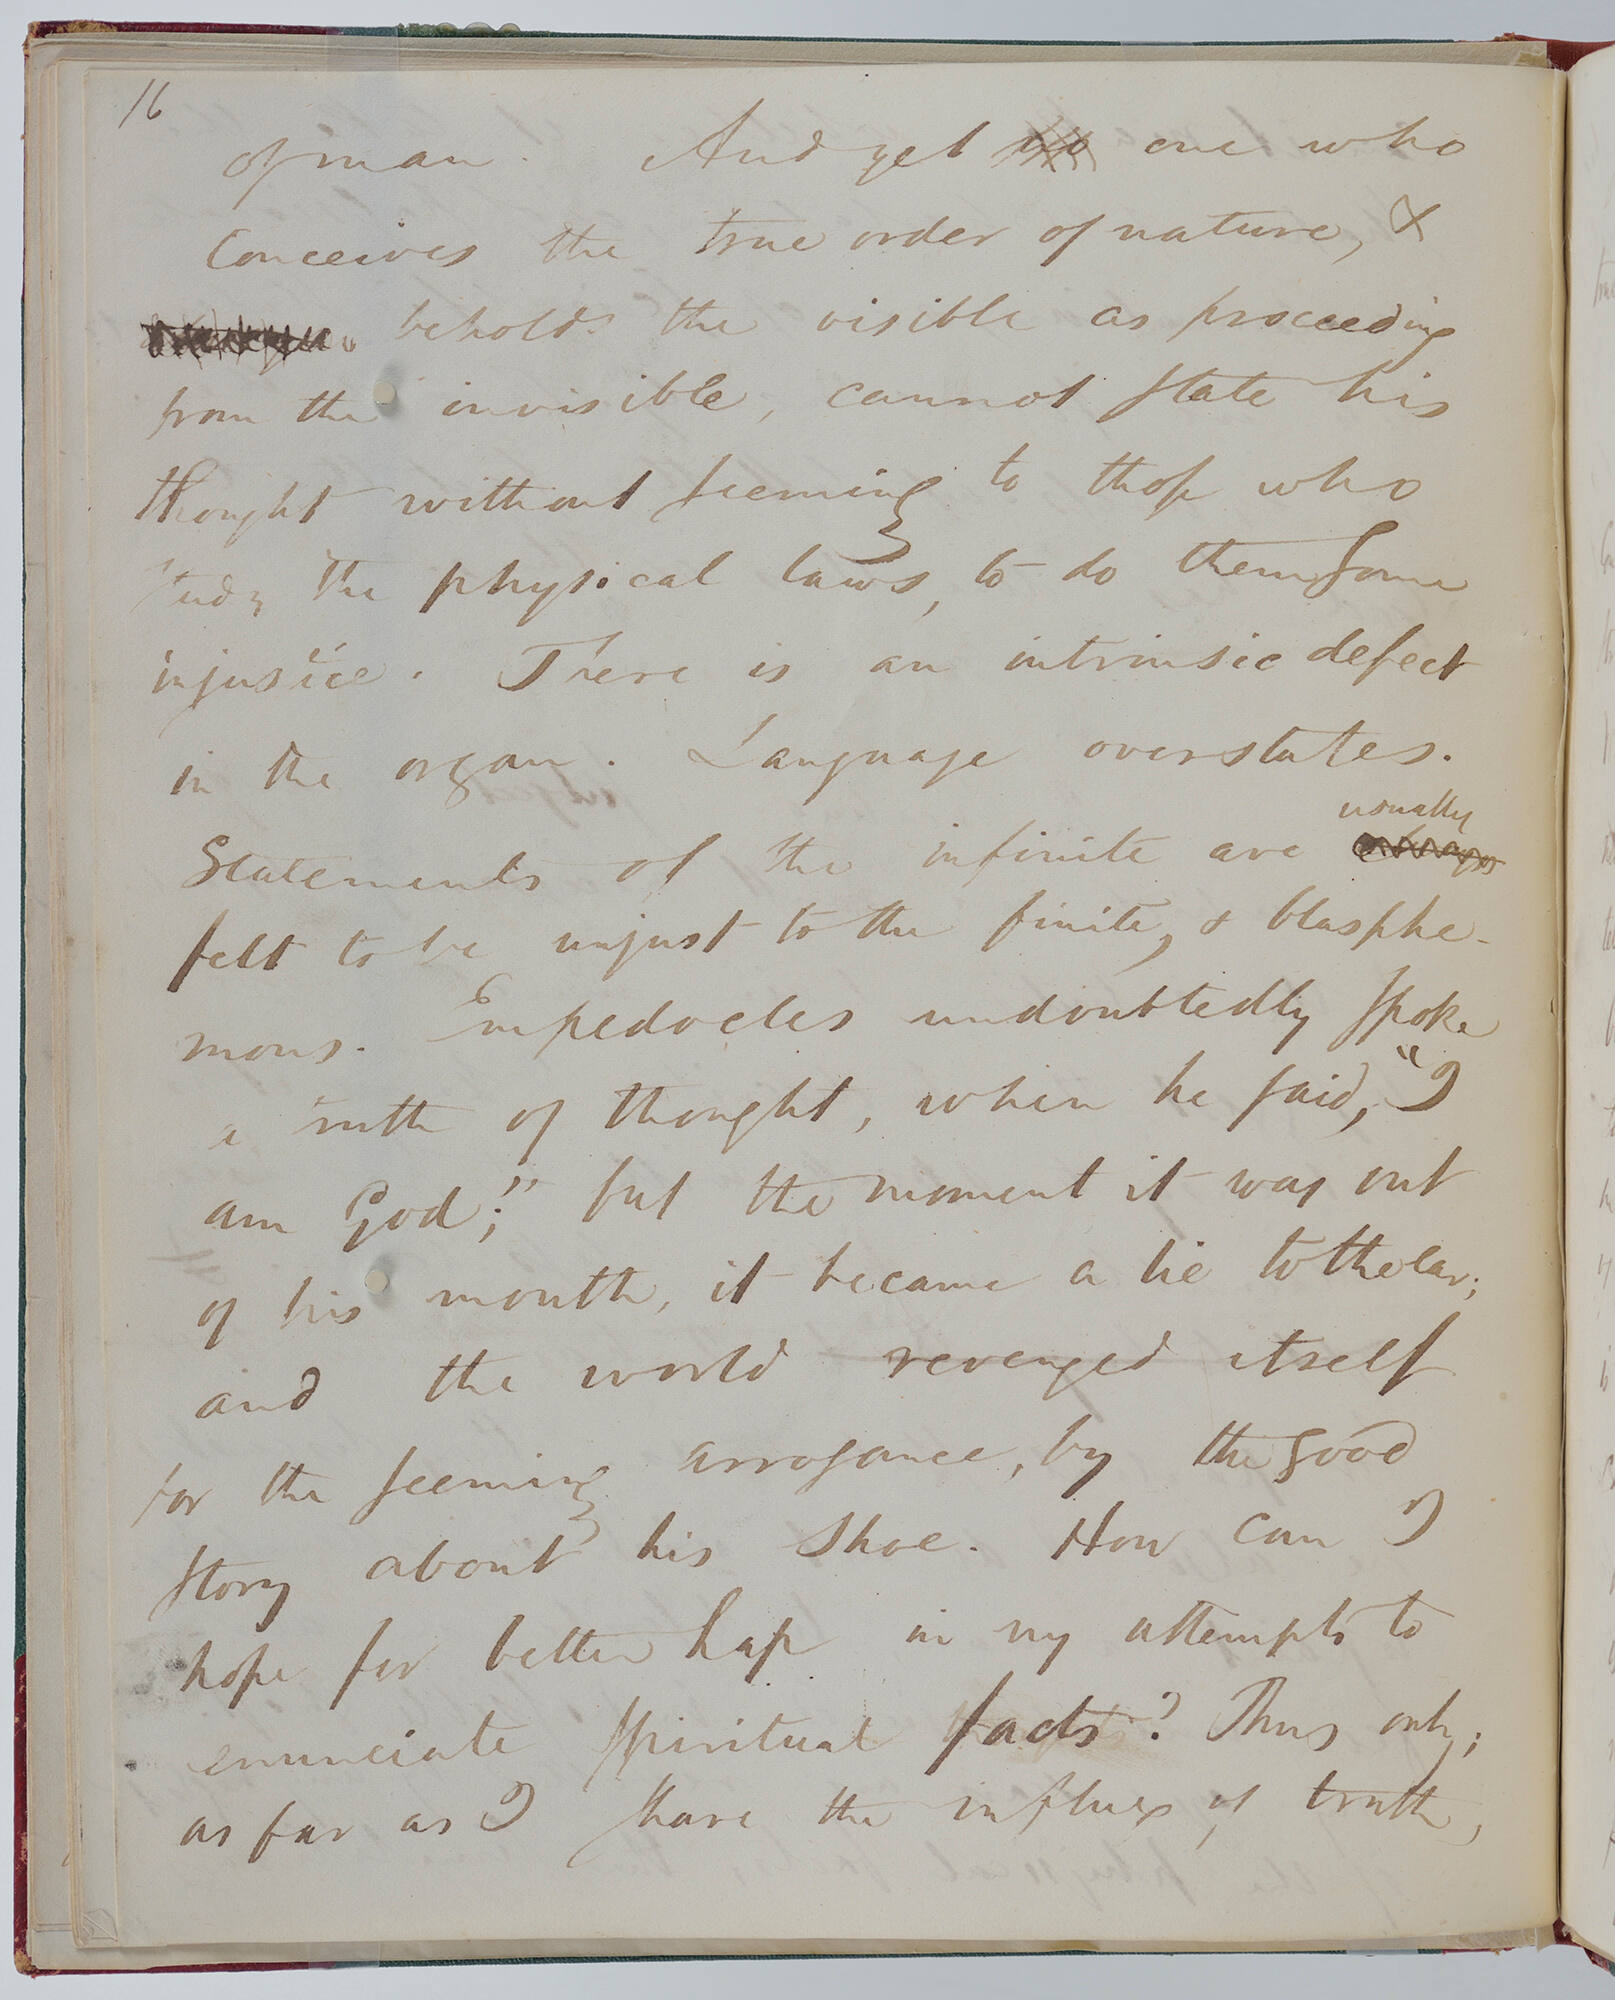 16
of man. And yet one who
conceives the true order of nature, &
beholds the visible as proceeding
from the invisible, cannot state his
thought without seeming to those who
study the physical laws, to do them some
injustice. There is an intrinsic defect
in the organ. Language overstates.
usually
Statements of the infinite are always
felt to be unjust to the finite, & blasphe-
mous. Empedocles undoubtedly spoke
a truth of thought, when he said, "I
am God;" but the moment it was out
of his mouth, it became a lie to the ear;
and the world revenged itself
for the seeming arrogance, by the good
story about his shoe. How can I
hope for better hap in my attempts to
enunciate spiritual facts? Thus only;
as far as I share the influx of truth,